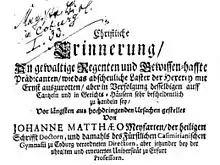 Christliche
Erinnerung/
An gewaltige Regenten und Gewissenhaffte
Prädicanten/ wie das abscheuliche Laster der Hexerey mit
Ernst auszurotten/ aber in Verfolgung desselbigen auff
Cantzeln und in Gerichts-Häusern sehr bescheidentlich
zu handeln sey/
Vor längsten aus hochdringenden Ursachen gestellet
Von
JOHANNE MATTHÆO Meyfarten/ der heiligen
Schrifft Doctorn, und damahls des Fürstlichen Casimirianischen
Gymnasii zu Coburg verordneten Directorn, aber jetzunder bey der
uhralten und erneuerten Universität zu Erfurt
Professorn.